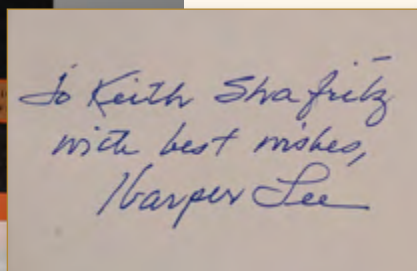 To Keith Shafritz
with best wishes,
Harper Lee